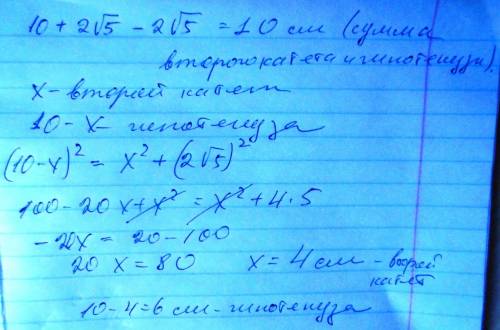 10 + 2√5 - 2√5 = 10 см (сумма
второго катета и гипотенузы).
х - второй катет
10 - х - гипотенуза
(10-х)² = х² + (2√5)²
100 - 20х + х² = х² + 4·5
- 20х = 20 - 100
20 х = 80 х = 4 см - второй
катет
10 - 4 = 6 см - гипотенуза